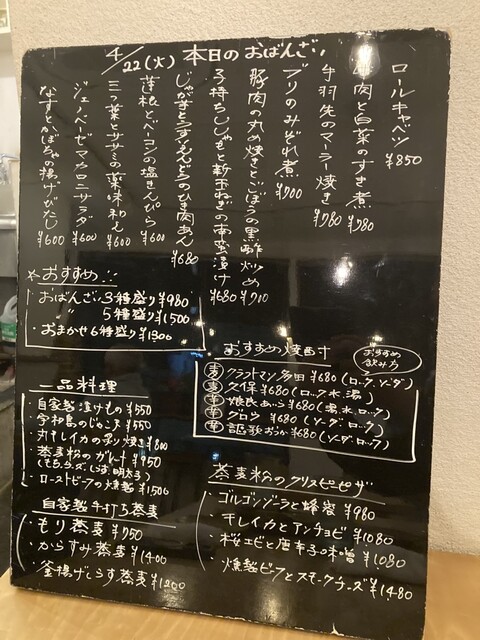 4/22(火) 本日のおばんざい
ロールキャベツ ¥850
牛肉と白菜のすき煮 ¥780
手羽先のマーラー焼き ¥780
ブリのみぞれ煮 ¥700
豚肉の丸め焼きとごぼうの黒酢炒め ¥710
子持ちししゃもと新玉ねぎの南蛮漬け ¥680
じゃが芋とうすいえんどうのひき肉あん ¥680
蓮根とベーコンの塩きんぴら ¥600
三つ葉とササミの薬味和え ¥600
ジェノベーゼマカロニサラダ ¥600
なすとかぼちゃの揚げびたし ¥600
*おすすめ!!
おばんざい3種盛り ¥980
〃 5種盛り ¥1500
・おまかせ6種盛り ¥1300
おすすめ焼酎
おすすめ飲み方
麦 クラフトマン多田 ¥680 (ロック、ソーダ)
麦 久保 ¥680 (ロック水湯)
¥680 (湯水ロック)
¥680 (ソーダロック)
¥680 (ソーダロック)
一品料理
・自家製漬けもの ¥550
・宇和島のじゃこ天 ¥550
・丸干しイカの炙り焼き ¥800
・蕎麦粉のガレット ¥950
・ローストビーフの燻製 ¥1500
蕎麦粉のクリスピーピザ
・ゴルゴンゾーラと蜂蜜 ¥980
・干しイカとアンチョビ ¥1080
・桜エビと唐辛子の味噌 ¥1080
・燻製ビーフとスモークチーズ ¥1480
自家製手打ち蕎麦
・もり蕎麦 ¥750
・からすみ蕎麦 ¥1400
・釜揚げしらす蕎麦 ¥1200